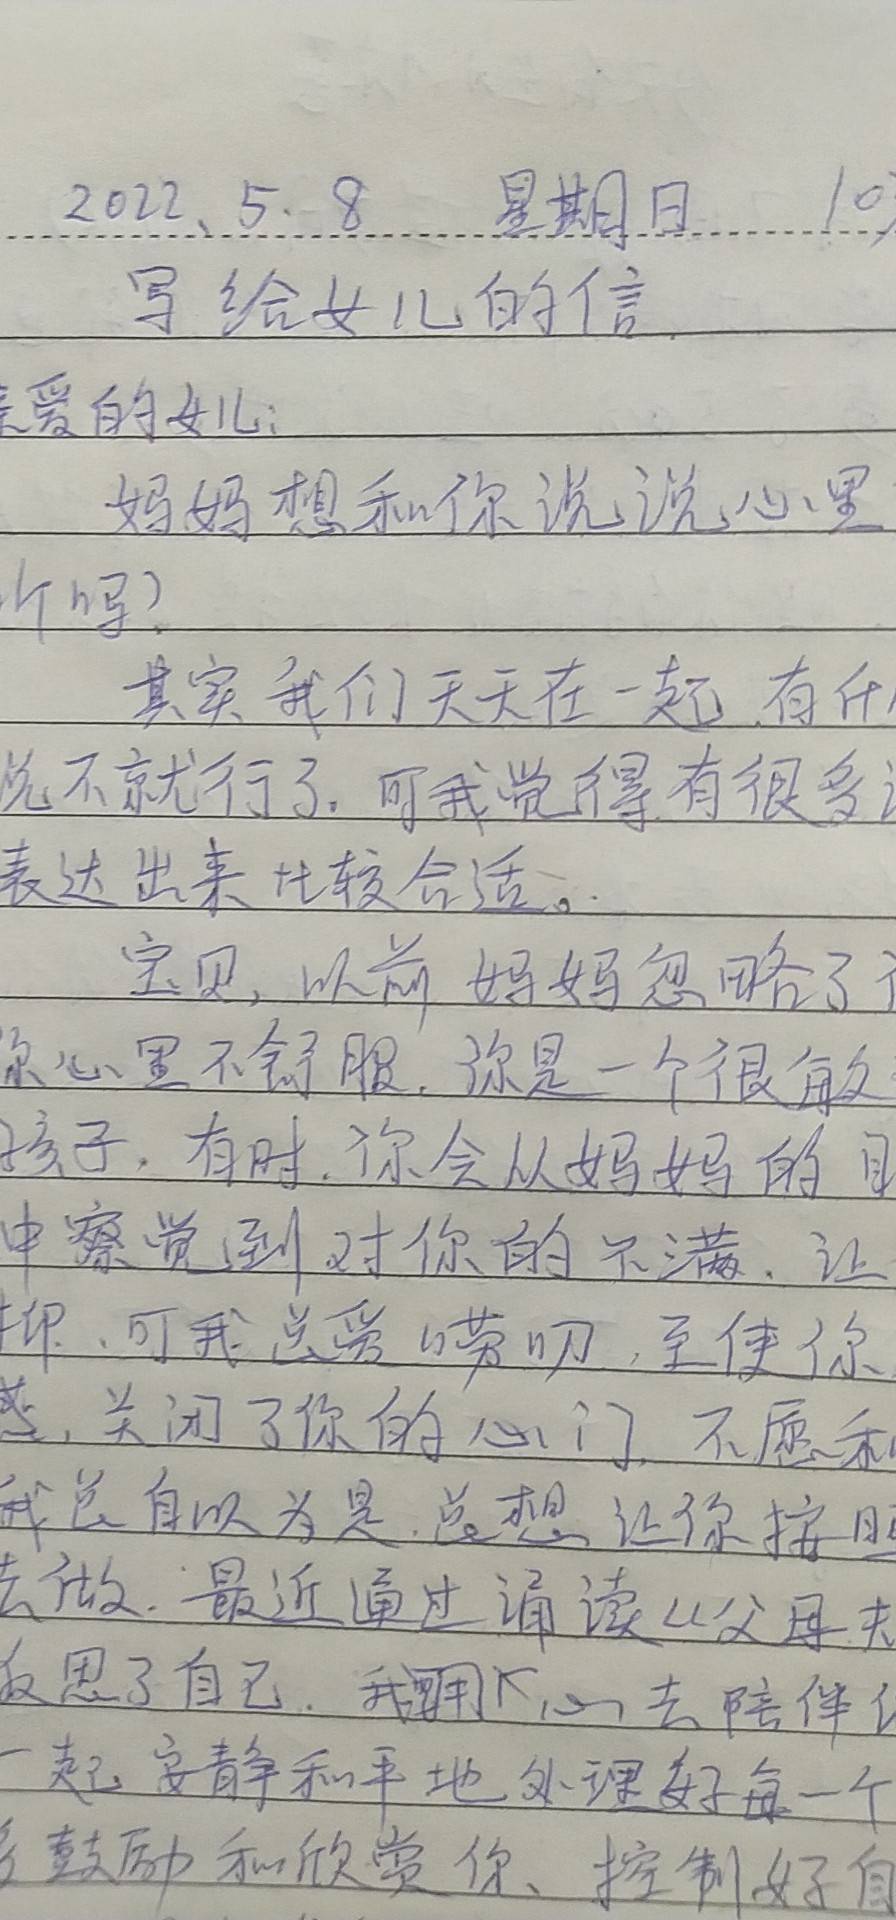 2022.5.8 星期日 10
写给女儿的信
爱的女儿:
妈妈想和你说说心里
吗?
其实我们天天在一起,有什
说不就行了.可我觉得,有很多
表达出来比较合适。
宝贝,以前妈妈忽略了
你心里不舒服.你是一个很敏
孩子.有时.你会从妈妈的目
中察觉到对你的不满.让
抑.可我总爱唠叨,至使你
惑,关闭了你的心门.不愿和
我总自以为是.总想让你按照
去做.最近通过诵读《父母
反思了自己.我用心去陪伴
一起安静和平地处理好每一个
多鼓励和欣赏你、控制好自